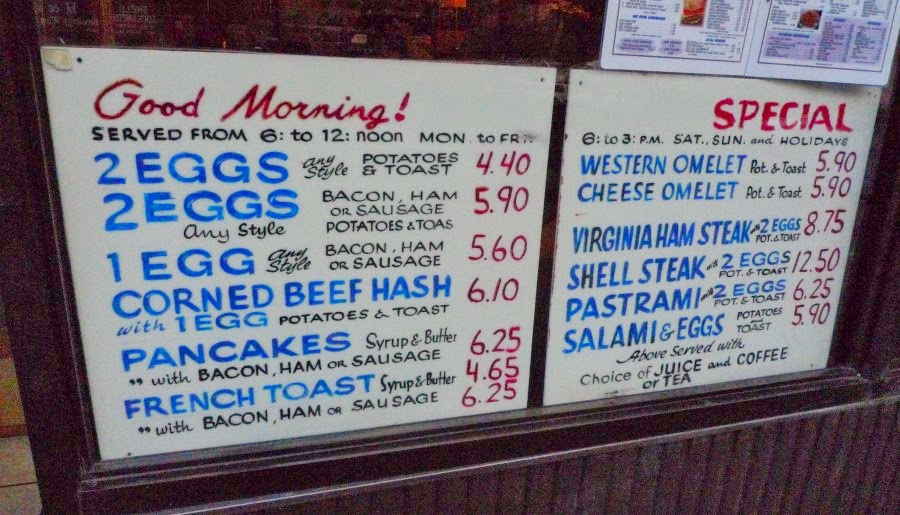 Good Morning!
SERVED FROM 6: to 12: noon MON. to FRI.
2 EGGS any Style POTATOES & TOAST 4.40
2 EGGS Any Style BACON, HAM OR SAUSAGE POTATOES & TOAS 5.90
1 EGG any Style BACON, HAM OR SAUSAGE 5.60
CORNED BEEF HASH 6.10
with 1 EGG POTATOES & TOAST
PANCAKES Syrup & Butter 6.25
" with BACON, HAM OR SAUSAGE 4.65
FRENCH TOAST Syrup & Butter 6.25
" with BACON, HAM OR SAUSAGE
SPECIAL
6: to 3: P.M. SAT., SUN. and HOLIDAYS
WESTERN OMELET Pot. & Toast 5.90
CHEESE OMELET Pot. & Toast 5.90
VIRGINIA HAM STEAK with 2 EGGS POT. & TOAST 8.75
SHELL STEAK with 2 EGGS POT. & TOAST 12.50
PASTRAMI with 2 EGGS POT. & TOAST 6.25
SALAMI & EGGS POTATOES and TOAST 5.90
Above Served with
Choice of JUICE and COFFEE
OR TEA